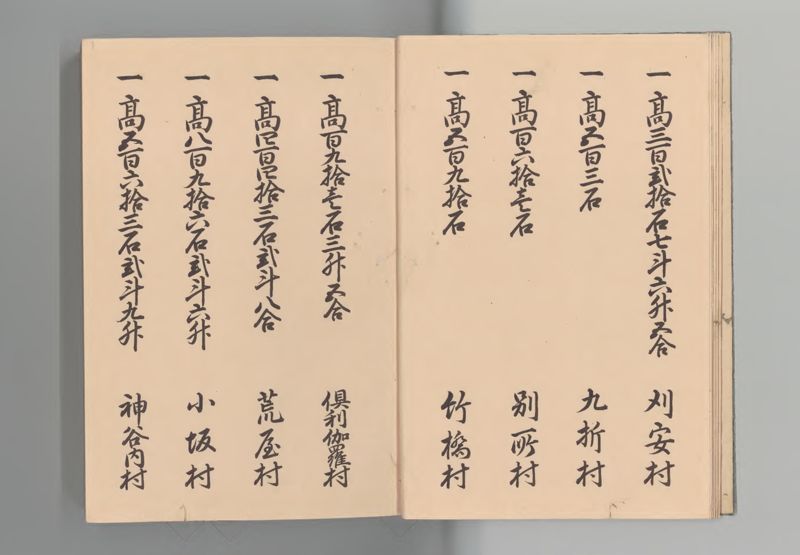 一髙三百弐拾石七斗六升五合 刈安村
一髙五百三石 九折村
一髙百六拾壱石 別所村
一髙五百九拾石 竹橋村
一髙百九拾壱石三升五合 倶利伽羅村
一髙四百四拾三石弐斗八合 荒屋村
一髙八百九拾六石弐斗六升 小坂村
一髙五百六拾三石弐斗九升 神谷内村